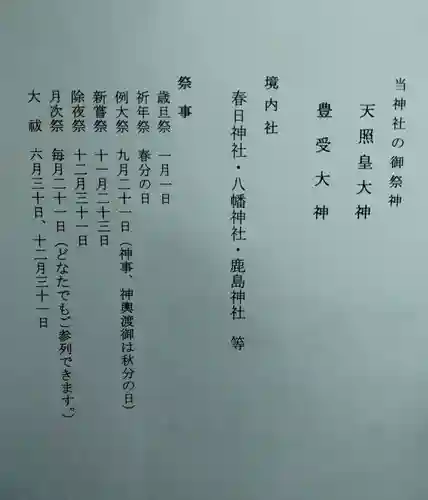 当神社の御祭神
天照皇大神
豊受大神
境内社
春日神社・八幡神社・鹿島神社 等
祭事
歳旦祭 一月一日
祈年祭 春分の日
例大祭 九月二十一日（神事、神輿渡御は秋分の日）
新嘗祭 十一月二十三日
除夜祭 十二月三十一日
月次祭 毎月二十一日（どなたでもご参列できます。）
大祓 六月三十日、十二月三十一日